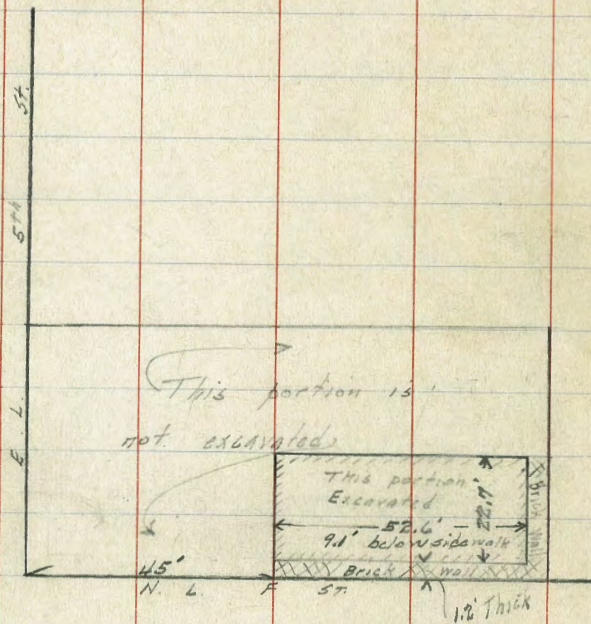 E L 5th St.
This portion is
not excavated
This portion
Excavated
52.6'
22.7'
9.1' below sidewalk
Brick Wall
Brick Wall
45'
N. L. F ST.
1.2' Thick